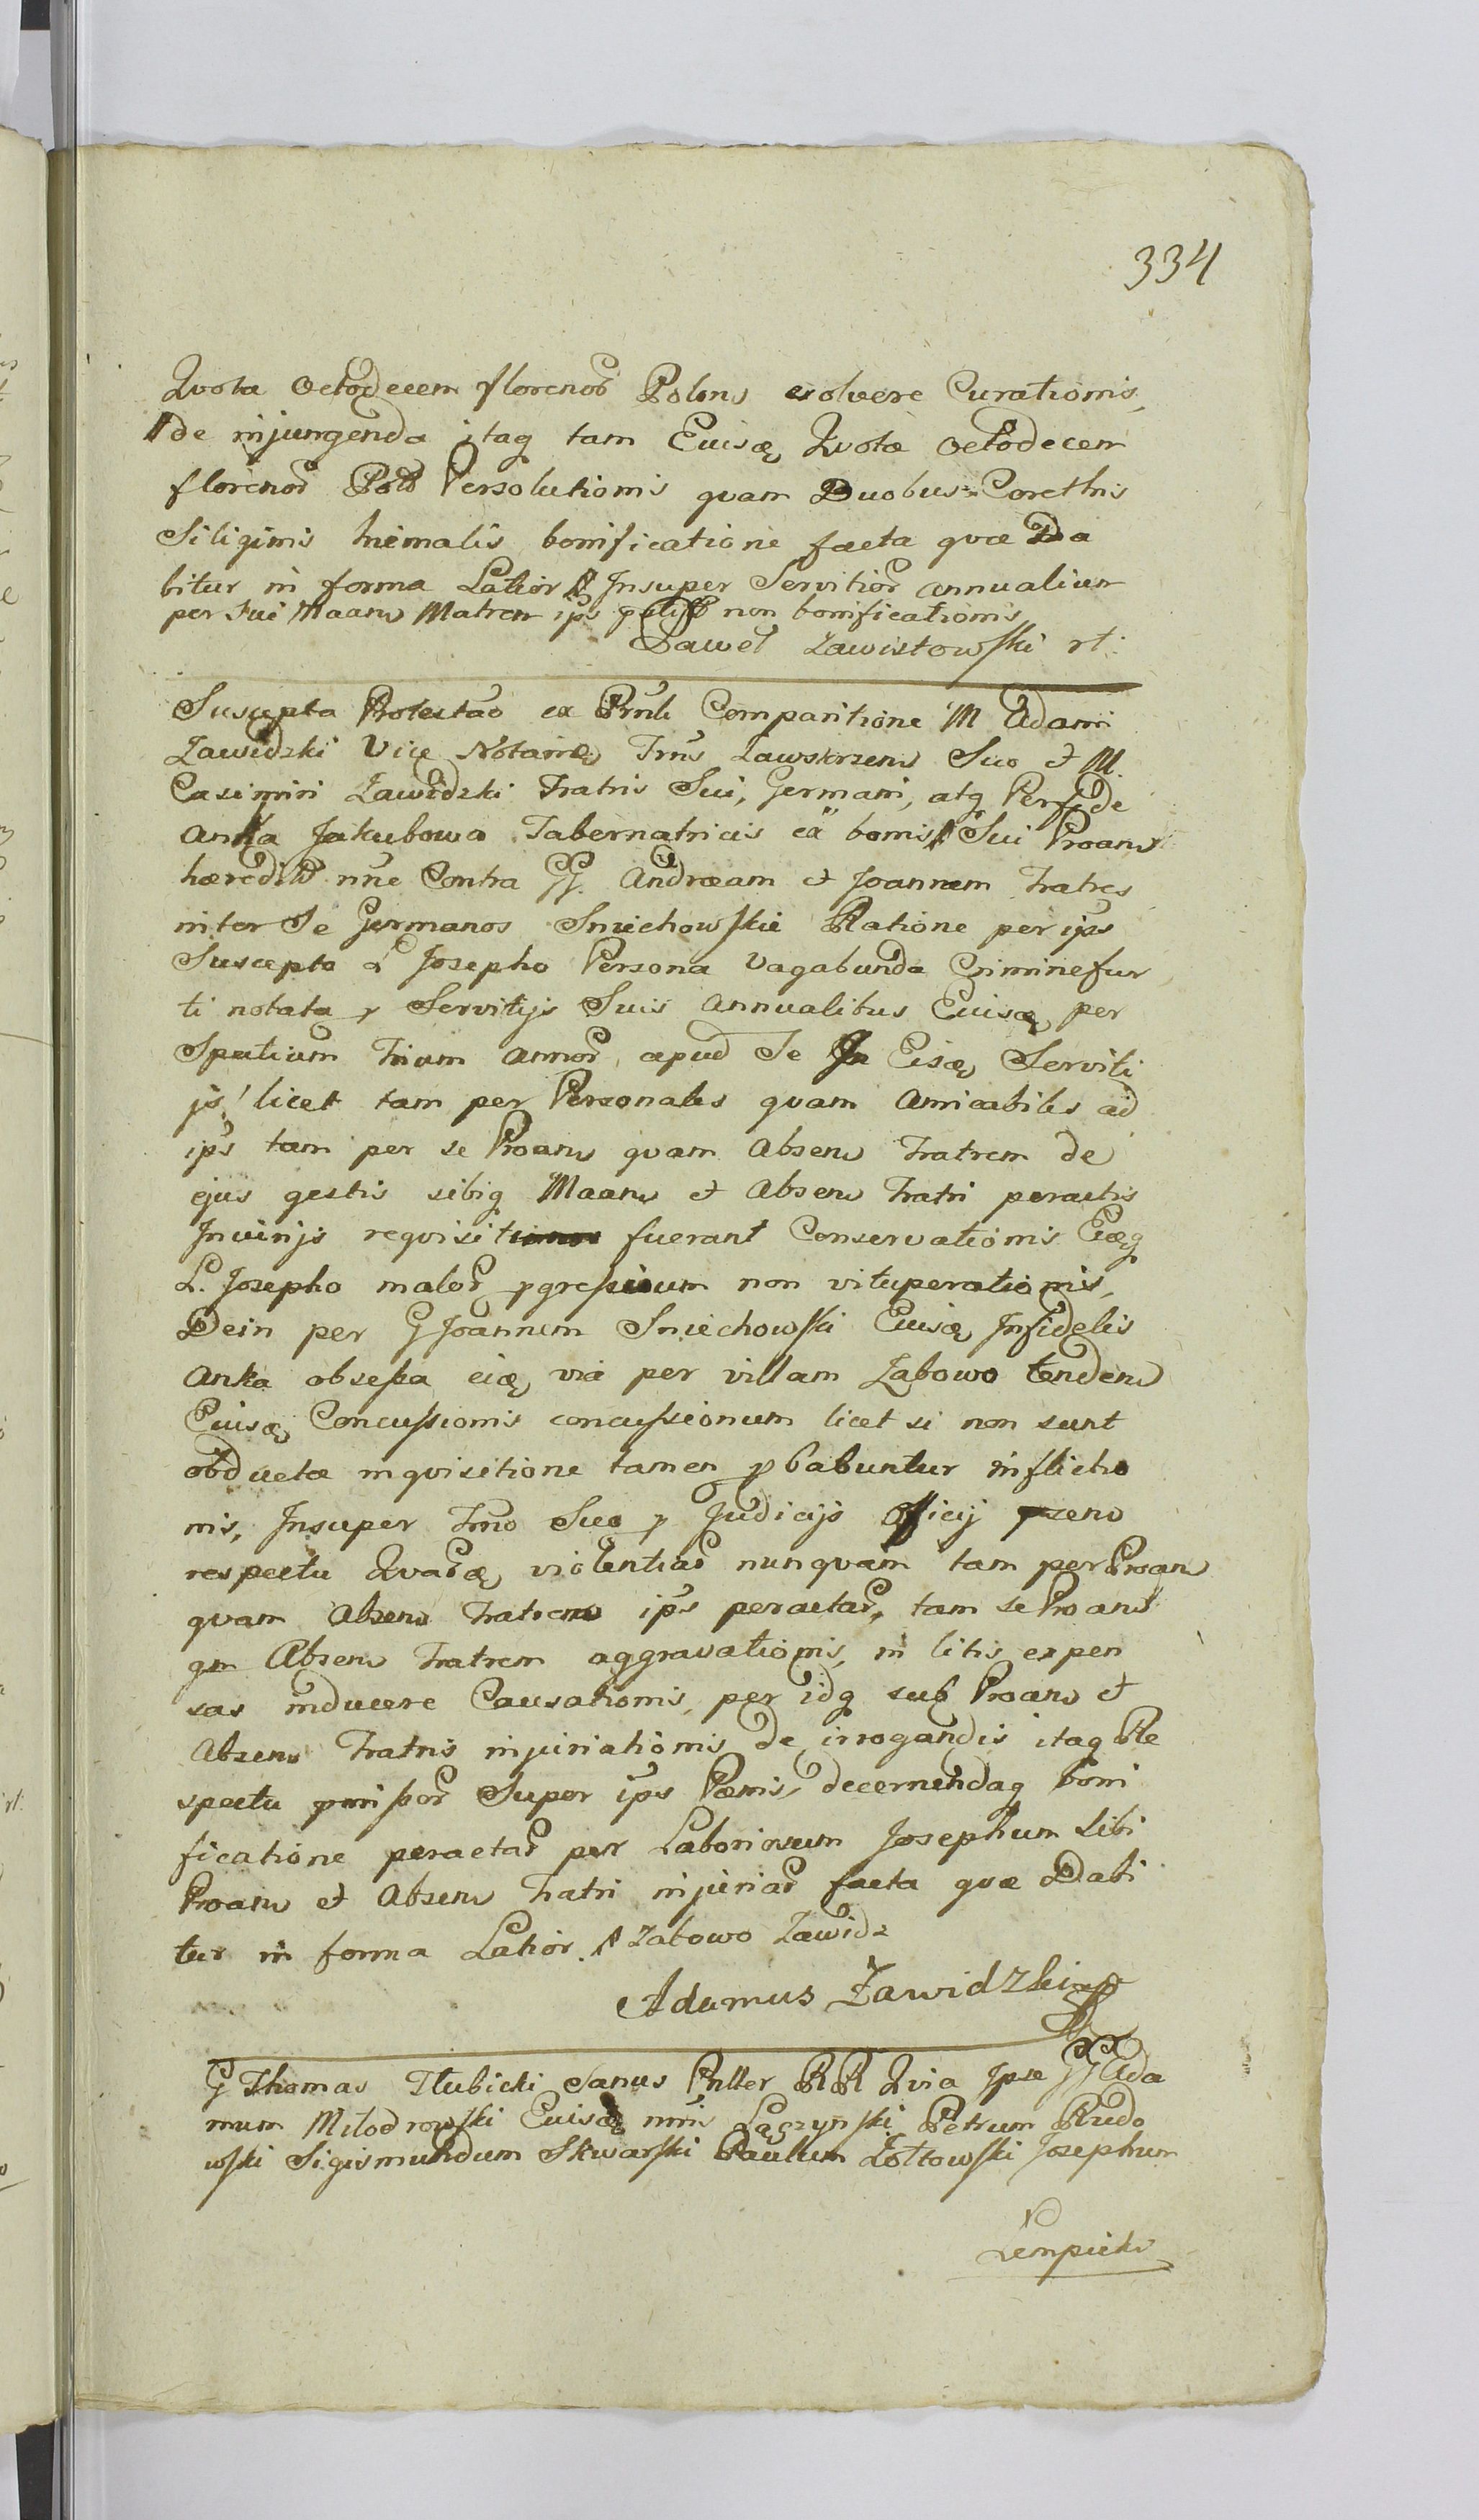 334
Qvota Octodecem florenor Polons exolvere Curationis,
de injungenda itaq tam Euisq Qvotæ Octodecem
florenor Pold Persolutionis qvam Duobus Corethis
Siliginis hiemalis bonificatione facta qvæ Da
bitur in forma Latior Insuper Servitior annualium
per sui Maans Matrem ips non bonificationis
Paweł Zawistowski rt:
Suscepta Protestao ex Prnli Comparitione M Adami
Zawidzki Vice Notarij Trris Zawskrzens Suo et M.
Casimiri Zawidzki Fratris Sui, Germani, atq Perfidæ
Anka Jakubowa Tabernatricis ex bonis Sui Proans
hæredit nne Contra GG. Andræam et Joannem Fratres
inter Se Germanos Smiechowskie Ratione per ips
Suscepto L Josepho Persona Vagabunda Crimine fur
ti notata p Servitijs Suis Annualibus Euisq per
Spatium Trium Annor apud Se In Eisq Serviti
js licet tam per Personales qvam Amicabiles ad
ips tam per se Proans qvam Absens Fratrem de
ejus gestis sibiq Maans et Absens Fratri peractis
Injurijs reqvisit fuerant Conservationis Euq
L. Josepho malor pgressuum non vituperationis,
Dein per G Joannem Smiechowski Euisq Infidelis
Anka obsessa eiq via per villam Zabowo tendens
Euisq Concussionis concussionum licet si non sunt
obductæ inqvisitione tamen pbabuntur inflictio
nis, Insuper Trrno Suo p Judicijs Officij pzens
respectu Qvarq violentiar nunqvam tam per Proans
qvam Absens Fratrem ips peractar, tam se Proans
qm Absens Fratrem aggravationis, in litis expen
sas inducere Causationis, per idq sub Proans et
Absens Fratris injuriationis de irrogandis itaq Re
spectu pmissor Super ips Pænis decernendaq boni
ficatione peractar per Laboriosum Josephum Sibi
Proans et Absens Fratri injuriar facta qvæ Dabi
tur in forma Latior. Zabowo Zawidz
Adamus Zawidzki mp
G Thomas Tłubicki Sanus RR Qvia Ipse GG Ada
mum Miłodrowski Euisq nnis Łączynski Petrum Rudo
wski Sigismundum Skwarski Paulum Żołtowski Josephum
Lempicki